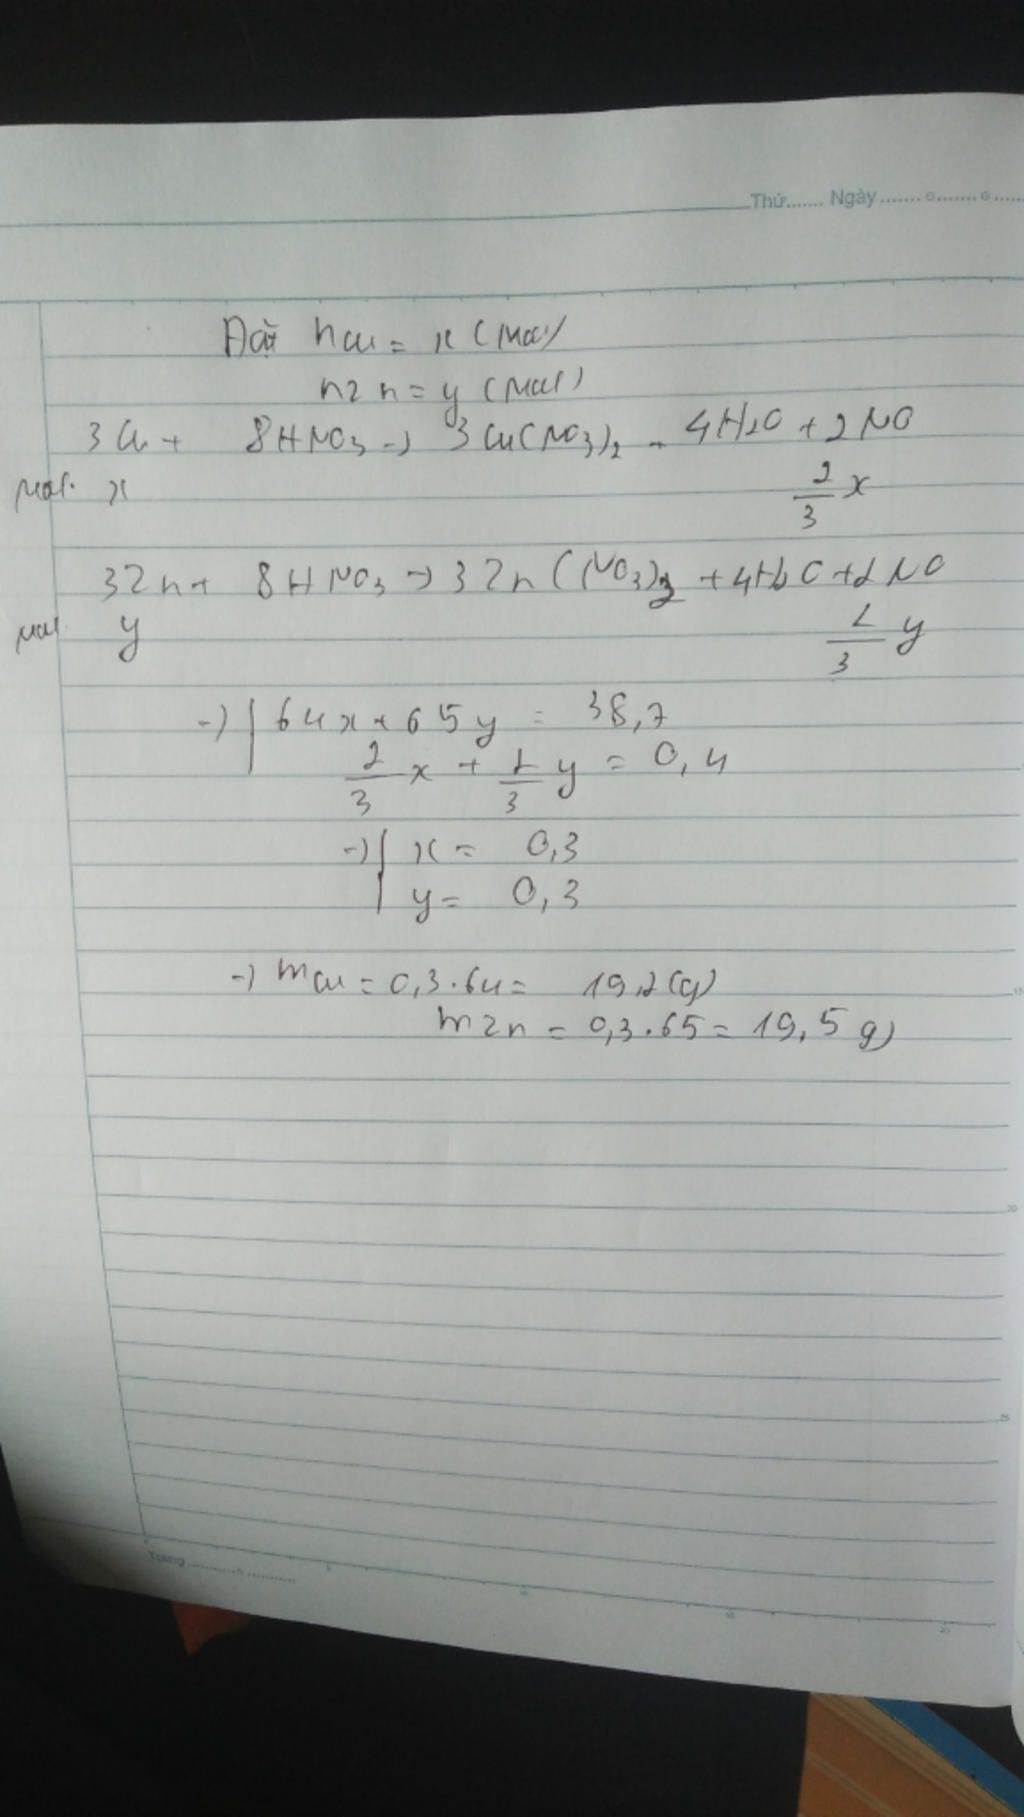 Thứ....... Ngày ....... o....... o .....
Đặt nCu = x (mol)
nZn = y (mol)
3Cu + 8HNO3 -> 3Cu(NO3)2 + 4H2O + 2NO
mol x 2/3 x
3Zn + 8HNO3 -> 3Zn(NO3)2 + 4H2O + 2NO
mol y 2/3 y
-> 64x + 65y = 38,7
2/3 x + 2/3 y = 0,4
-> x = 0,3
y = 0,3
-> mCu = 0,3.64 = 19,2 (g)
mZn = 0,3.65 = 19,5 g)
Trang ........... o ...........